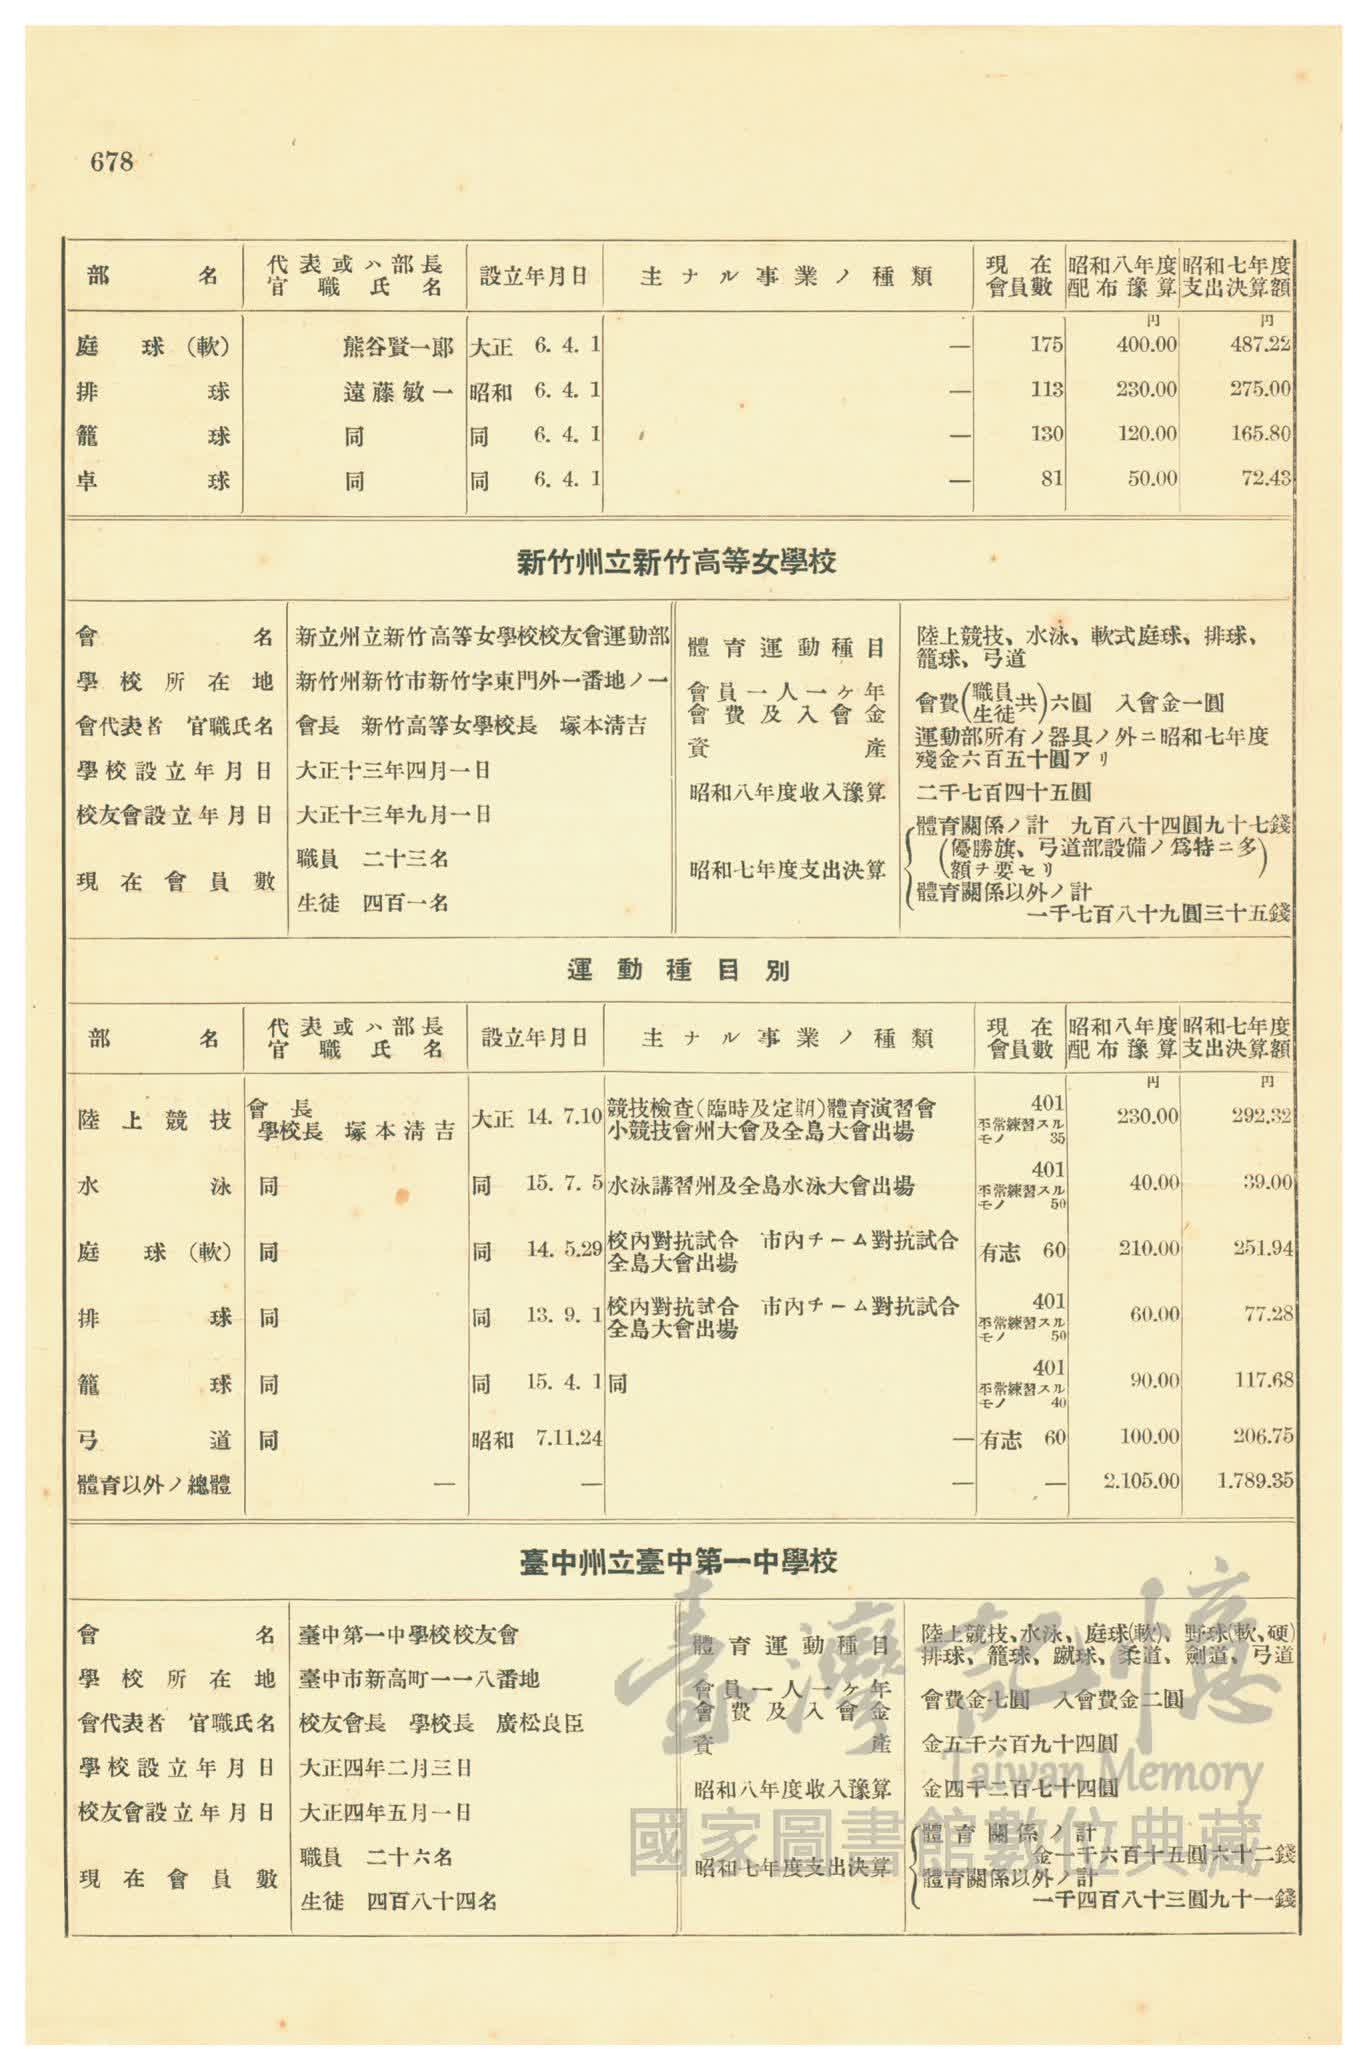 678
部名 代表或ハ部長官職氏名 設立年月日 主ナル事業ノ種類 現在會員數 昭和八年度配布豫算 昭和七年度支出決算額
円 円
庭球(軟) 熊谷賢一郎 大正 6. 4. 1 — 175 400.00 487.22
排球 遠藤敏一 昭和 6. 4. 1 — 113 230.00 275.00
籠球 同 同 6. 4. 1 — 130 120.00 165.80
卓球 同 同 6. 4. 1 — 81 50.00 72.43
新竹州立新竹高等女學校
會名 新立州立新竹高等女學校校友會運動部
學校所在地 新竹州新竹市新竹字東門外一番地ノ一
會代表者 官職氏名 會長 新竹高等女學校長 塚本清吉
學校設立年月日 大正十三年四月一日
校友會設立年月日 大正十三年九月一日
現在會員數 職員 二十三名
生徒 四百一名
體育運動種目 陸上競技、水泳、軟式庭球、排球、
籠球、弓道
會員一人一ヶ年會費及入會金 會費(職員生徒共)六圓 入會金一圓
資產 運動部所有ノ器具ノ外ニ昭和七年度
殘金六百五十圓アリ
昭和八年度收入豫算 二千七百四十五圓
昭和七年度支出決算 體育關係ノ計 九百八十四圓九十七錢
(優勝旗、弓道部設備ノ爲特ニ多
額チ要セリ)
體育關係以外ノ計
一千七百八十九圓三十五錢
運動種目別
部名 代表或ハ部長官職氏名 設立年月日 主ナル事業ノ種類 現在會員數 昭和八年度配布豫算 昭和七年度支出決算額
円 円
陸上競技 會長 學校長 塚本清吉 大正 14. 7.10 競技檢查(臨時及定期)體育演習會
小競技會州大會及全島大會出場 401 平常練習スルモノ 35 230.00 292.32
水泳 同 同 15. 7. 5 水泳講習州及全島水泳大會出場 401 平常練習スルモノ 50 40.00 39.00
庭球(軟) 同 同 14. 5.29 校內對抗試合 市內チーム對抗試合
全島大會出場 有志 60 210.00 251.94
排球 同 同 13. 9. 1 校內對抗試合 市內チーム對抗試合
全島大會出場 401 平常練習スルモノ 50 60.00 77.28
籠球 同 同 15. 4. 1 同 401 平常練習スルモノ 40 90.00 117.68
弓道 同 昭和 7.11.24 — 有志 60 100.00 206.75
體育以外ノ總體 — — — — 2.105.00 1.789.35
臺中州立臺中第一中學校
會名 臺中第一中學校校友會
學校所在地 臺中市新高町一一八番地
會代表者 官職氏名 校友會長 學校長 廣松良臣
學校設立年月日 大正四年二月三日
校友會設立年月日 大正四年五月一日
現在會員數 職員 二十六名
生徒 四百八十四名
體育運動種目 陸上競技、水泳、庭球(軟)、野球(軟、硬)
排球、籠球、蹴球、柔道、劍道、弓道
會員一人一ヶ年會費及入會金 會費金七圓 入會費金二圓
資產 金五千六百九十四圓
昭和八年度收入豫算 金四千二百七十四圓
昭和七年度支出決算 體育關係ノ計
金一千六百十五圓六十二錢
體育關係以外ノ計
一千四百八十三圓九十一錢
臺灣記憶
Taiwan Memory
國家圖書館數位典藏